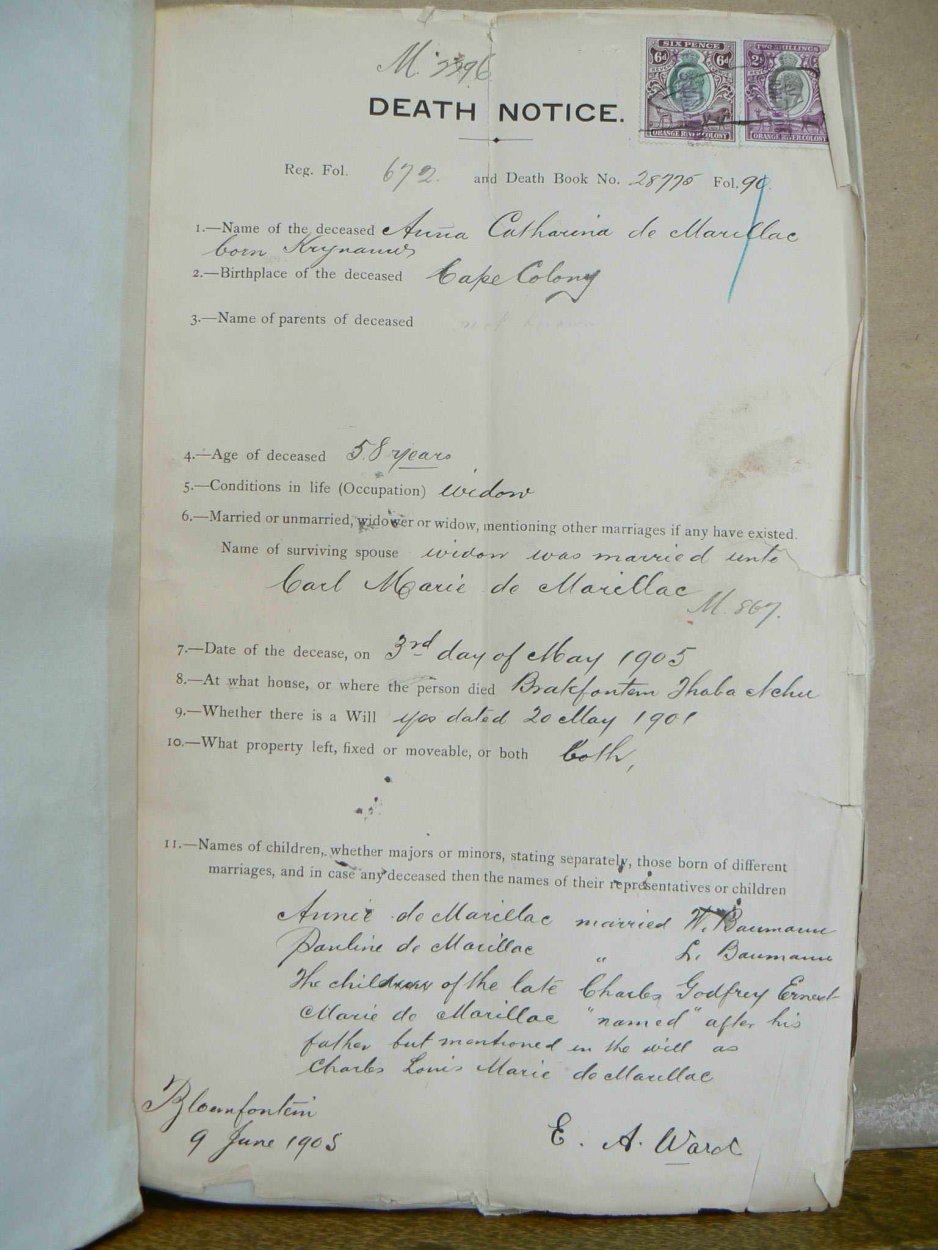 M. 2296
SIX PENCE TWO SHILLINGS
6d 6d 2s
ORANGE RIVER COLONY ORANGE RIVER COLONY
DEATH NOTICE.
Reg. Fol. 672. and Death Book No. 28775 Fol. 90
1.—Name of the deceased Anna Catharina de Marillac
born Krynauw
2.—Birthplace of the deceased Cape Colony
3.—Name of parents of deceased not known
4.—Age of deceased 58 years
5.—Conditions in life (Occupation) widow
6.—Married or unmarried, widower or widow, mentioning other marriages if any have existed.
Name of surviving spouse widow was married unto
Carl Marie de Marillac
M. 867.
7.—Date of the decease, on 3rd day of May 1905
8.—At what house, or where the person died Brakfontein Thaba Nchu
9.—Whether there is a Will yes dated 20 May 1901
10.—What property left, fixed or moveable, or both both,
11.—Names of children, whether majors or minors, stating separately, those born of different
marriages, and in case any deceased then the names of their representatives or children
Annie de Marillac married W. Baumann
Pauline de Marillac " L. Baumann
The children of the late Charles Godfrey Ernest
Marie de Marillac "named" after his
father but mentioned in the will as
Charles Louis Marie de Marillac
Bloemfontein
9 June 1905
E. A. Ward